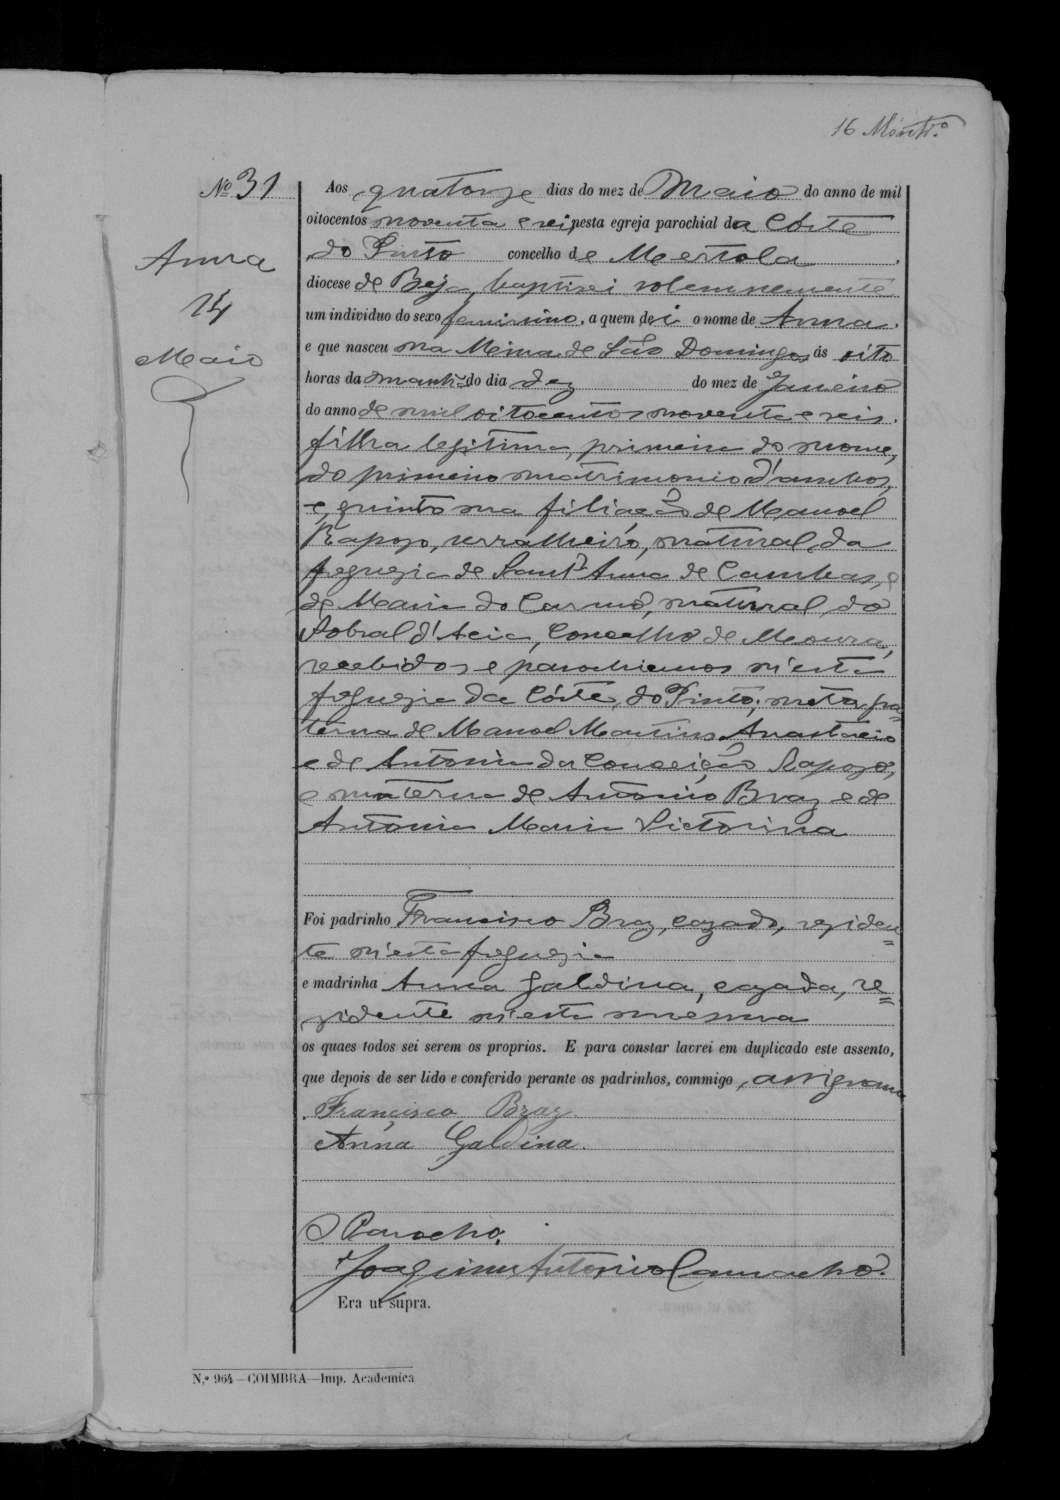 16 Montr.º
Nº 31
Anna
14
Maio
Aos quatorze dias do mez de Maio do anno de mil
oitocentos noventa e seis, nesta egreja parochial da Côrte
do Pinto concelho de Mertola
diocese de Beja, baptisei solemnemente
um individuo do sexo feminino, a quem dei o nome de Anna.
e que nasceu na Mina de São Domingos ás oito
horas da manhã do dia dez do mez de Janeiro
do anno de mil oitocentos noventa e seis.
filha legitima, primeira do nome,
do primeiro matrimonio d'ambos,
e quinto na filiação de Manoel
Raposo, serralheiro, natural da
freguezia de Sant'Anna de Cambas, e
de Maria do Carmo, natural do
Sobral d'Acia, Concelho de Moura,
recebidos e parochianos n'esta
freguezia da Côrte do Pinto; neta pa-
terna de Manoel Martins Anastacio
e de Antonia da Conceição Raposo,
e materna de Antonio Braz e de
Antonia Maria Victorina
Foi padrinho Francisco Braz, cazado, reziden=
te n'esta freguezia
e madrinha Anna Galdina, cazada, re=
zidente n'esta mesma
os quaes todos sei serem os proprios. E para constar lavrei em duplicado este assento,
que depois de ser lido e conferido perante os padrinhos, commigo, assignam
Francisco Braz.
Anna Galdina.
O Parocho,
Joaquim Antonio Camacho.
Era ut supra.
N.º 964—COIMBRA—Imp. Academica